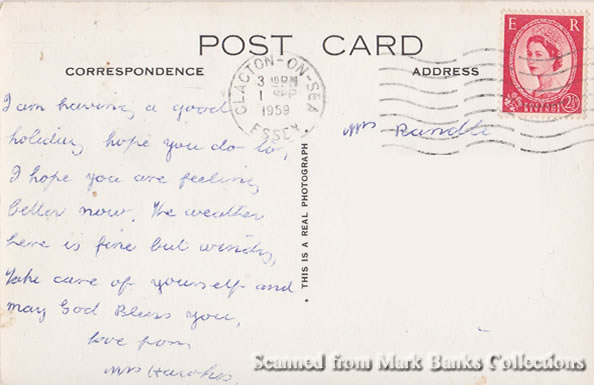 POST CARD
CORRESPONDENCE
ADDRESS
E R
2½
CLACTON-ON-SEA
1959
ESSEX
I am having a good
holiday hope you do to,
I hope you are feeling
better now. The weather
here is fine but windy,
Take care of yourself and
may God Bless you,
love from
Mrs Hawkes.
THIS IS A REAL PHOTOGRAPH
Mrs Randle
Scanned from Mark Banks Collections